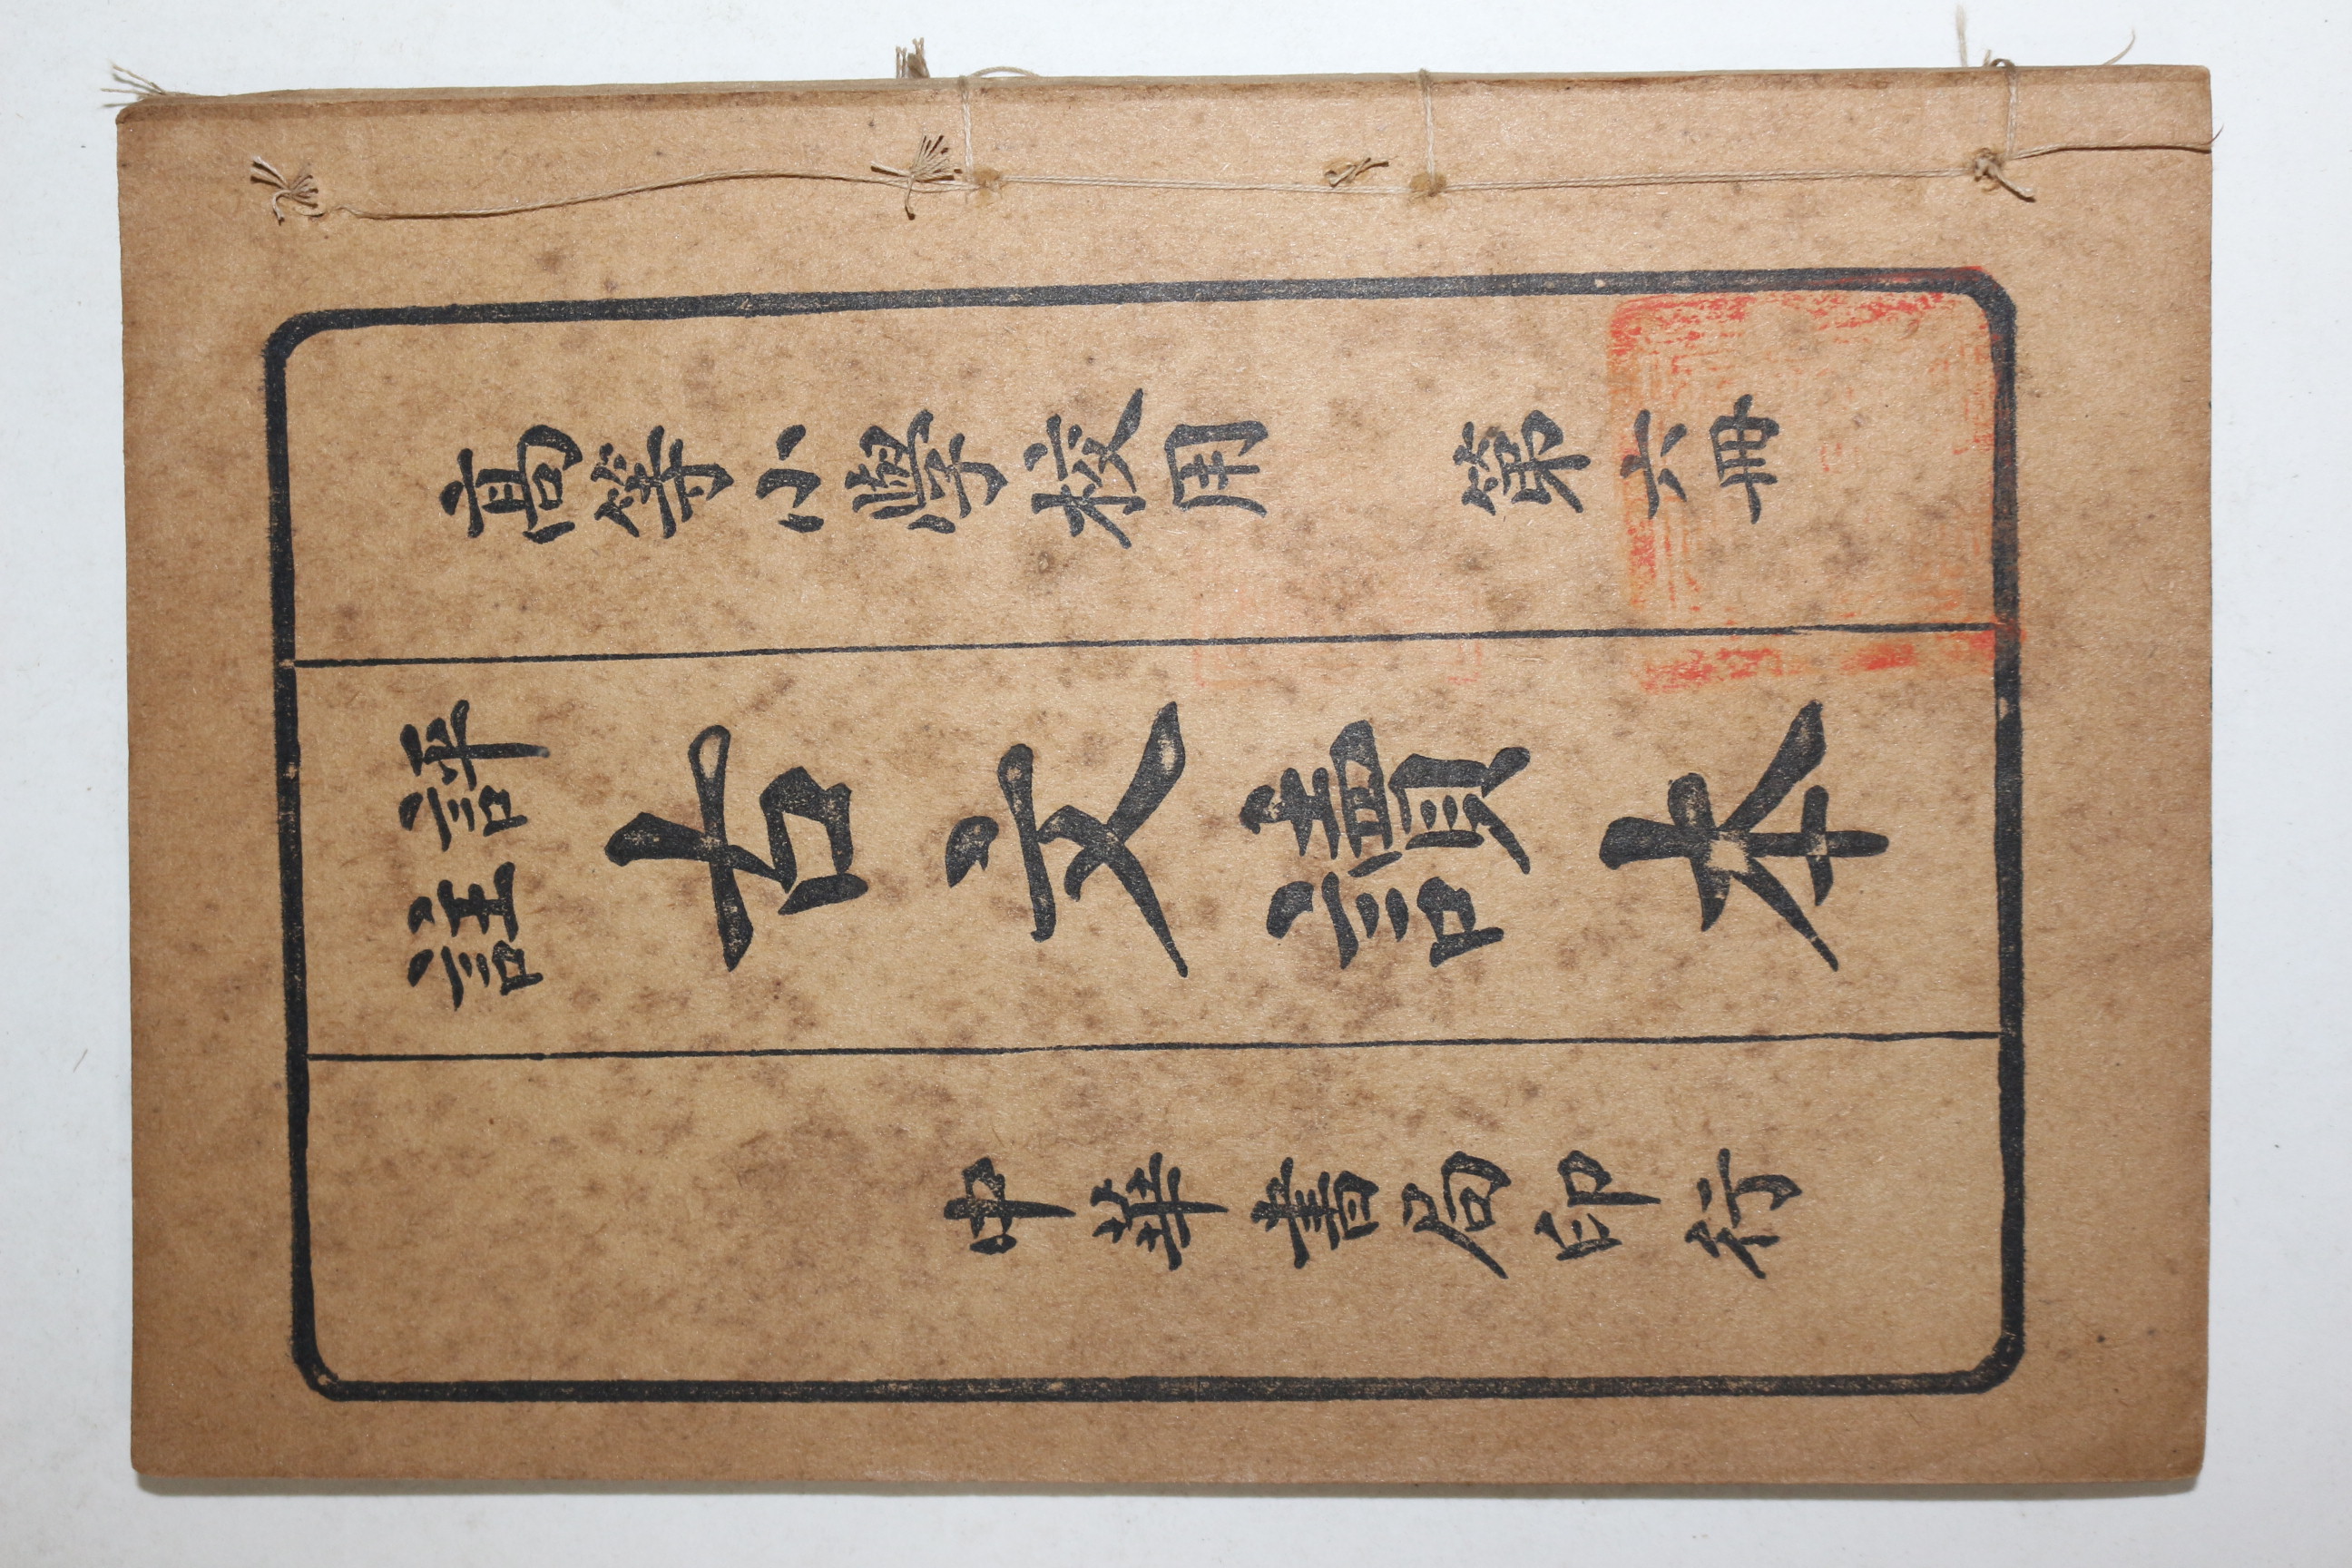 高等小學校用　第六冊
評註
古文讀本
中華書局印行